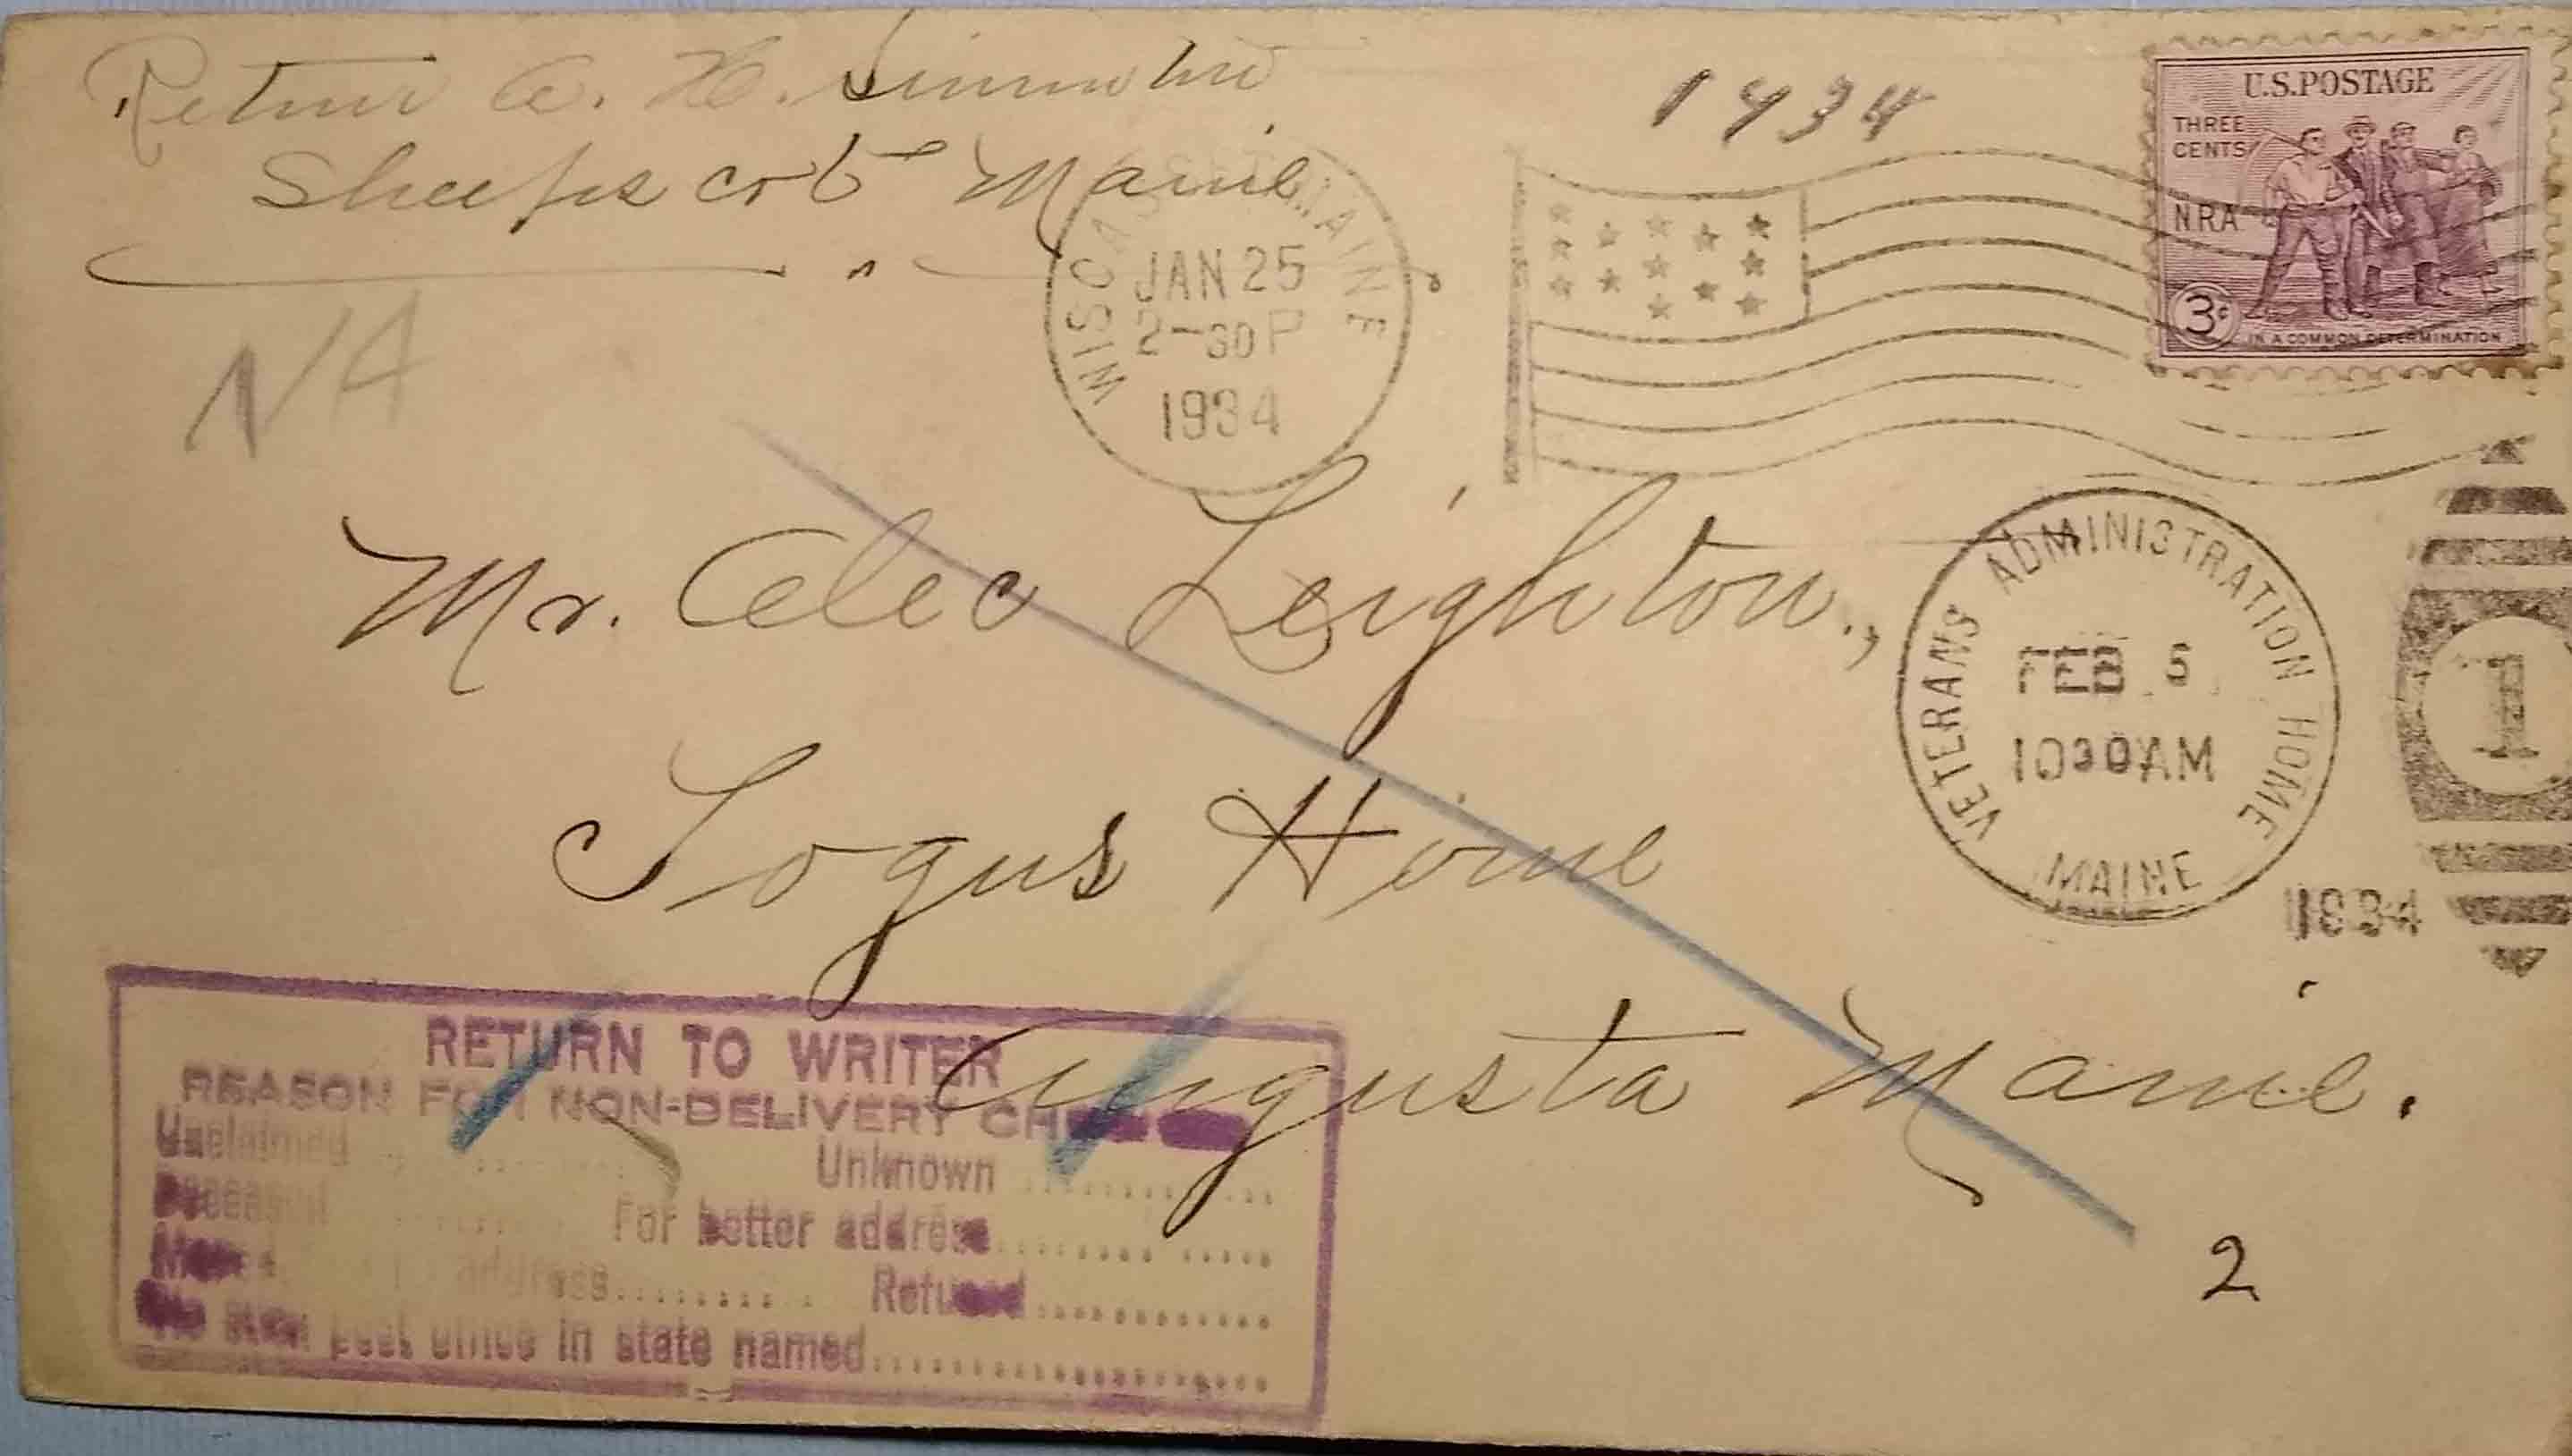 Return A. H.
Sheepscot Maine
1934
U.S. POSTAGE
THREE
CENTS
N.R.A.
3¢
IN A COMMON DETERMINATION
WISCASSET MAINE
JAN 25
2-30 P
1934
NA
Mr. Alec Leighton,
Togus Home
Augusta Maine.
VETERANS ADMINISTRATION HOME
FEB 5
1030AM
MAINE
1934
1
RETURN TO WRITER
REASON FOR NON-DELIVERY
Unclaimed Unknown
Deceased For better address
address Refused
No such post office in state named
2